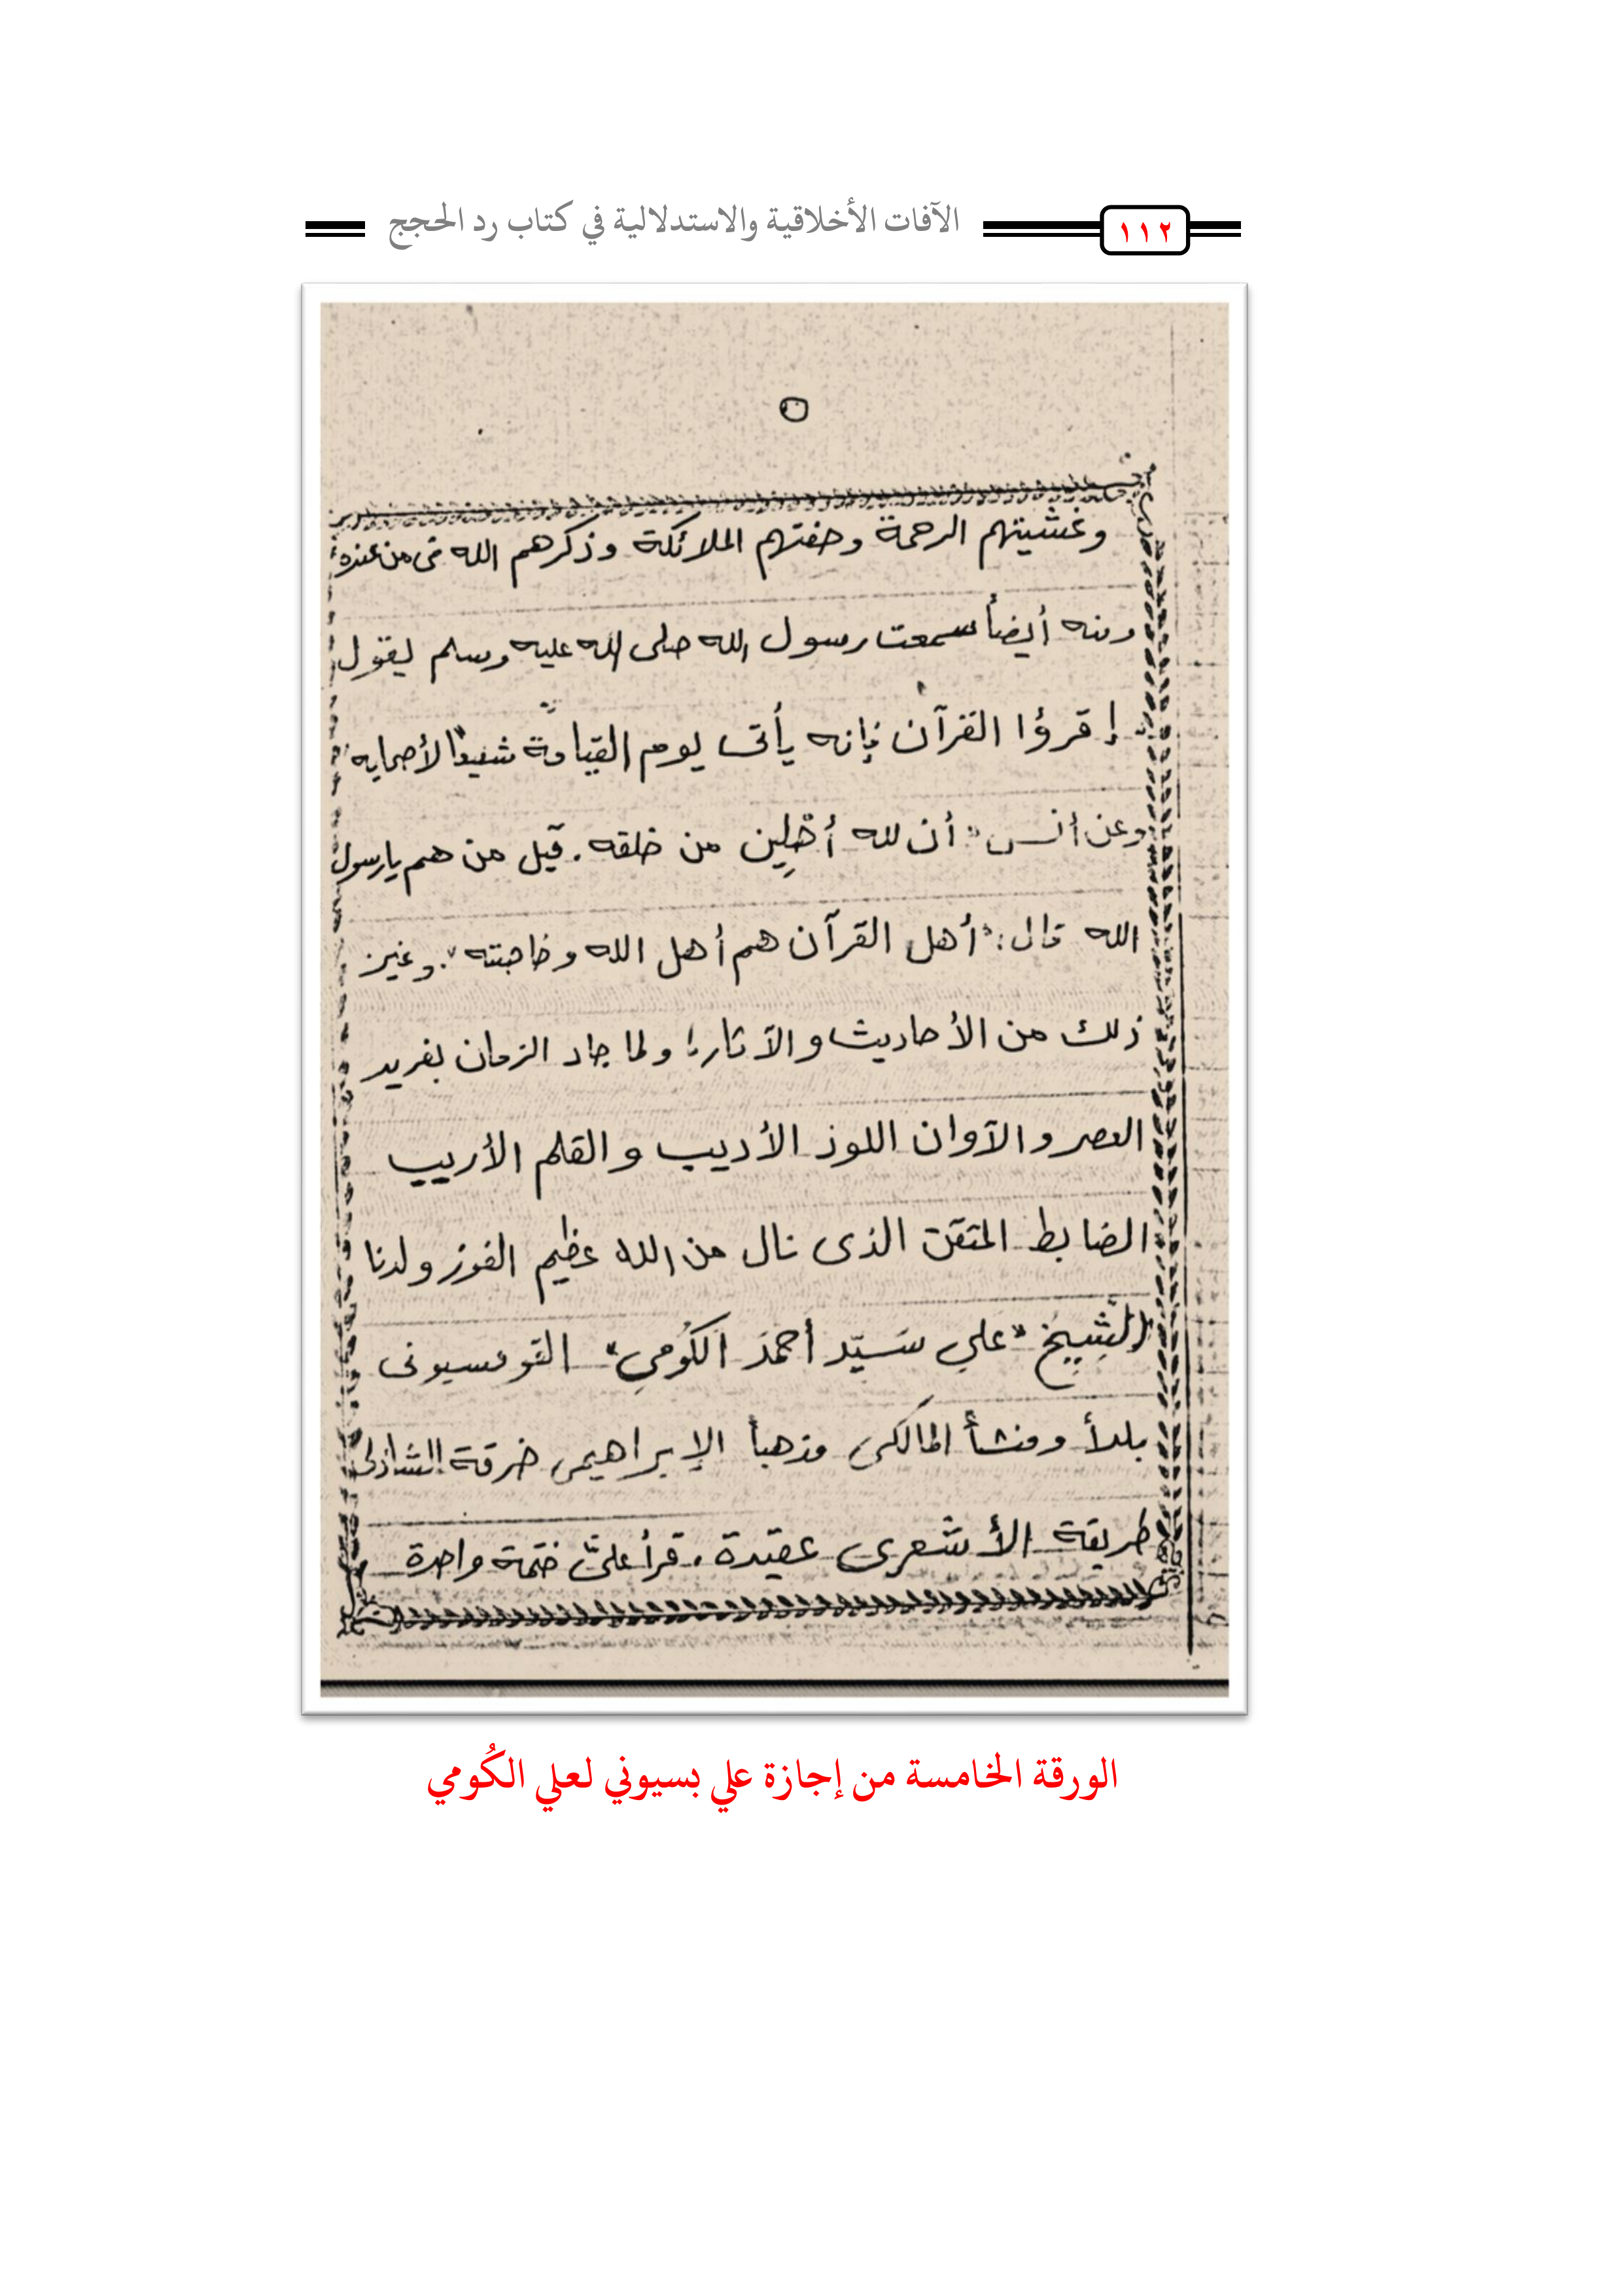 الآفات الأخلاقية والاستدلالية في كتاب رد الحجج
١١٢
٥
وغشيتهم الرحمة وحفتهم الملائكة وذكرهم الله فى من عنده
ومنه أيضاً سمعت رسول الله صلى الله عليه وسلم يقول
إقرؤا القرآن فإنه يأتى يوم القيامة شفيعًا لأصحابه
وعن أنس "أن لله أهلين من خلقه. قيل من هم يا رسول
الله قال: "أهل القرآن هم أهل الله وخاصته". وغير
ذلك من الأحاديث والآثار؛ ولما جاد الزمان بفريد
العصر والآوان اللوذ الأديب والقلم الأريب
الضابط المتقن الذى نال من الله عظيم الفوز ولدنا
الشيخ "علي سَيّد أحمد الكُومي" القومسيونى
بلداً ومنشأ المالكى مذهباً الإبراهيمى خرقة الشاذلى
طريقة الأشعرى عقيدة. قرأ علىّ ختمة واحدة
الورقة الخامسة من إجازة علي بسيوني لعلي الكُومي